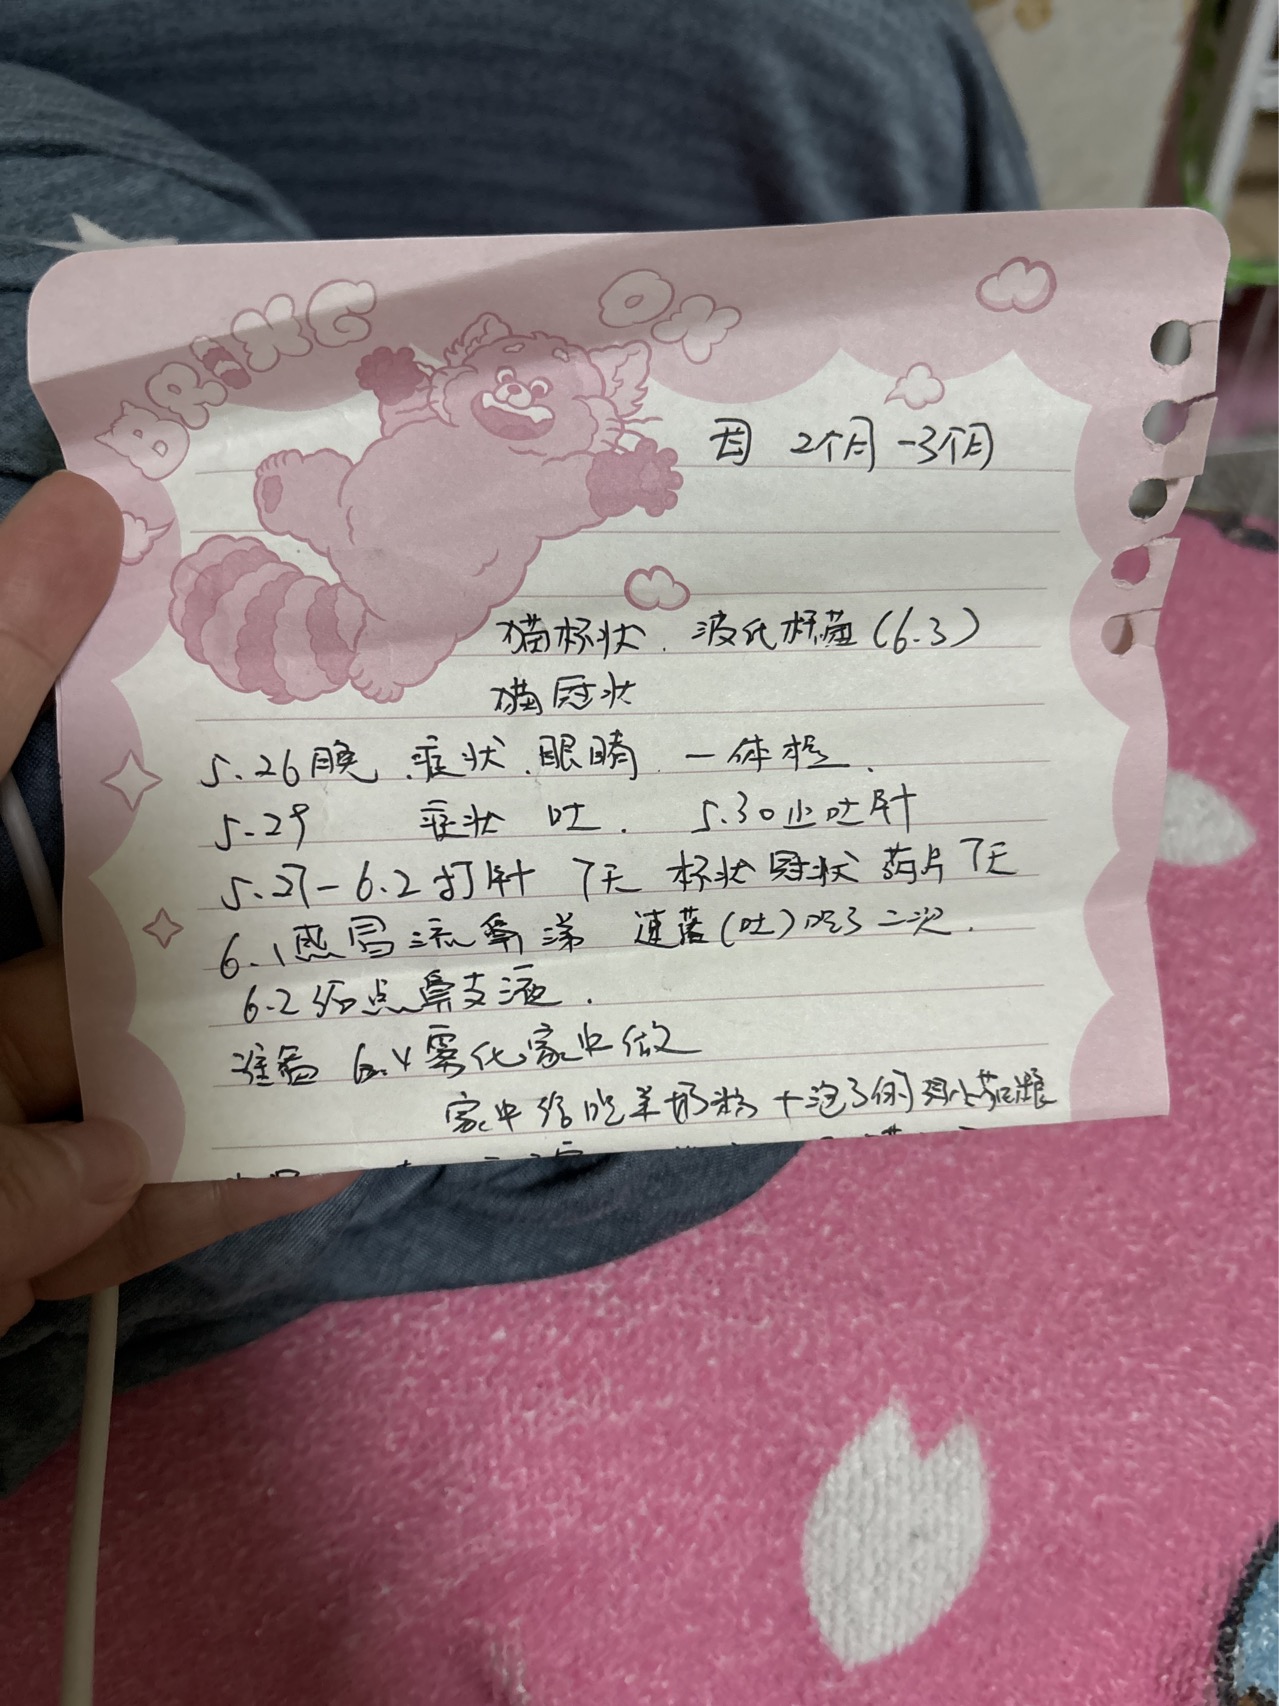 BRING ON
母 2个月-3个月
猫杯状. 波氏杆菌(6.3)
猫冠状
5.26晚.症状.眼睛 一体检.
5.29 症状 吐. 5.30止吐针
5.27-6.2打针 7天 杯状冠状药片7天
6.1感冒流鼻涕 速诺(吐)吃了二次.
6.2 点鼻支液.
准备 6.4雾化家中做
家中给吃羊奶粉+泡了的